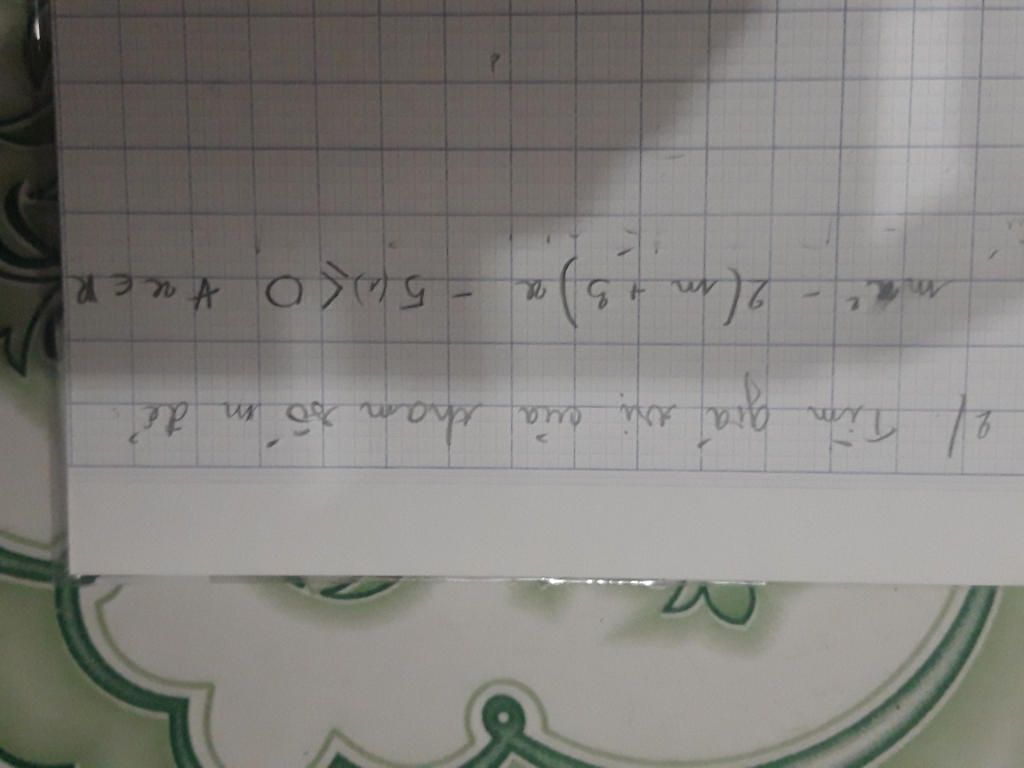 2/ Tìm giá trị của tham số m để:
mx² - 2(m + 3)x - 5(1) ≤ 0 ∀ x ∈ R